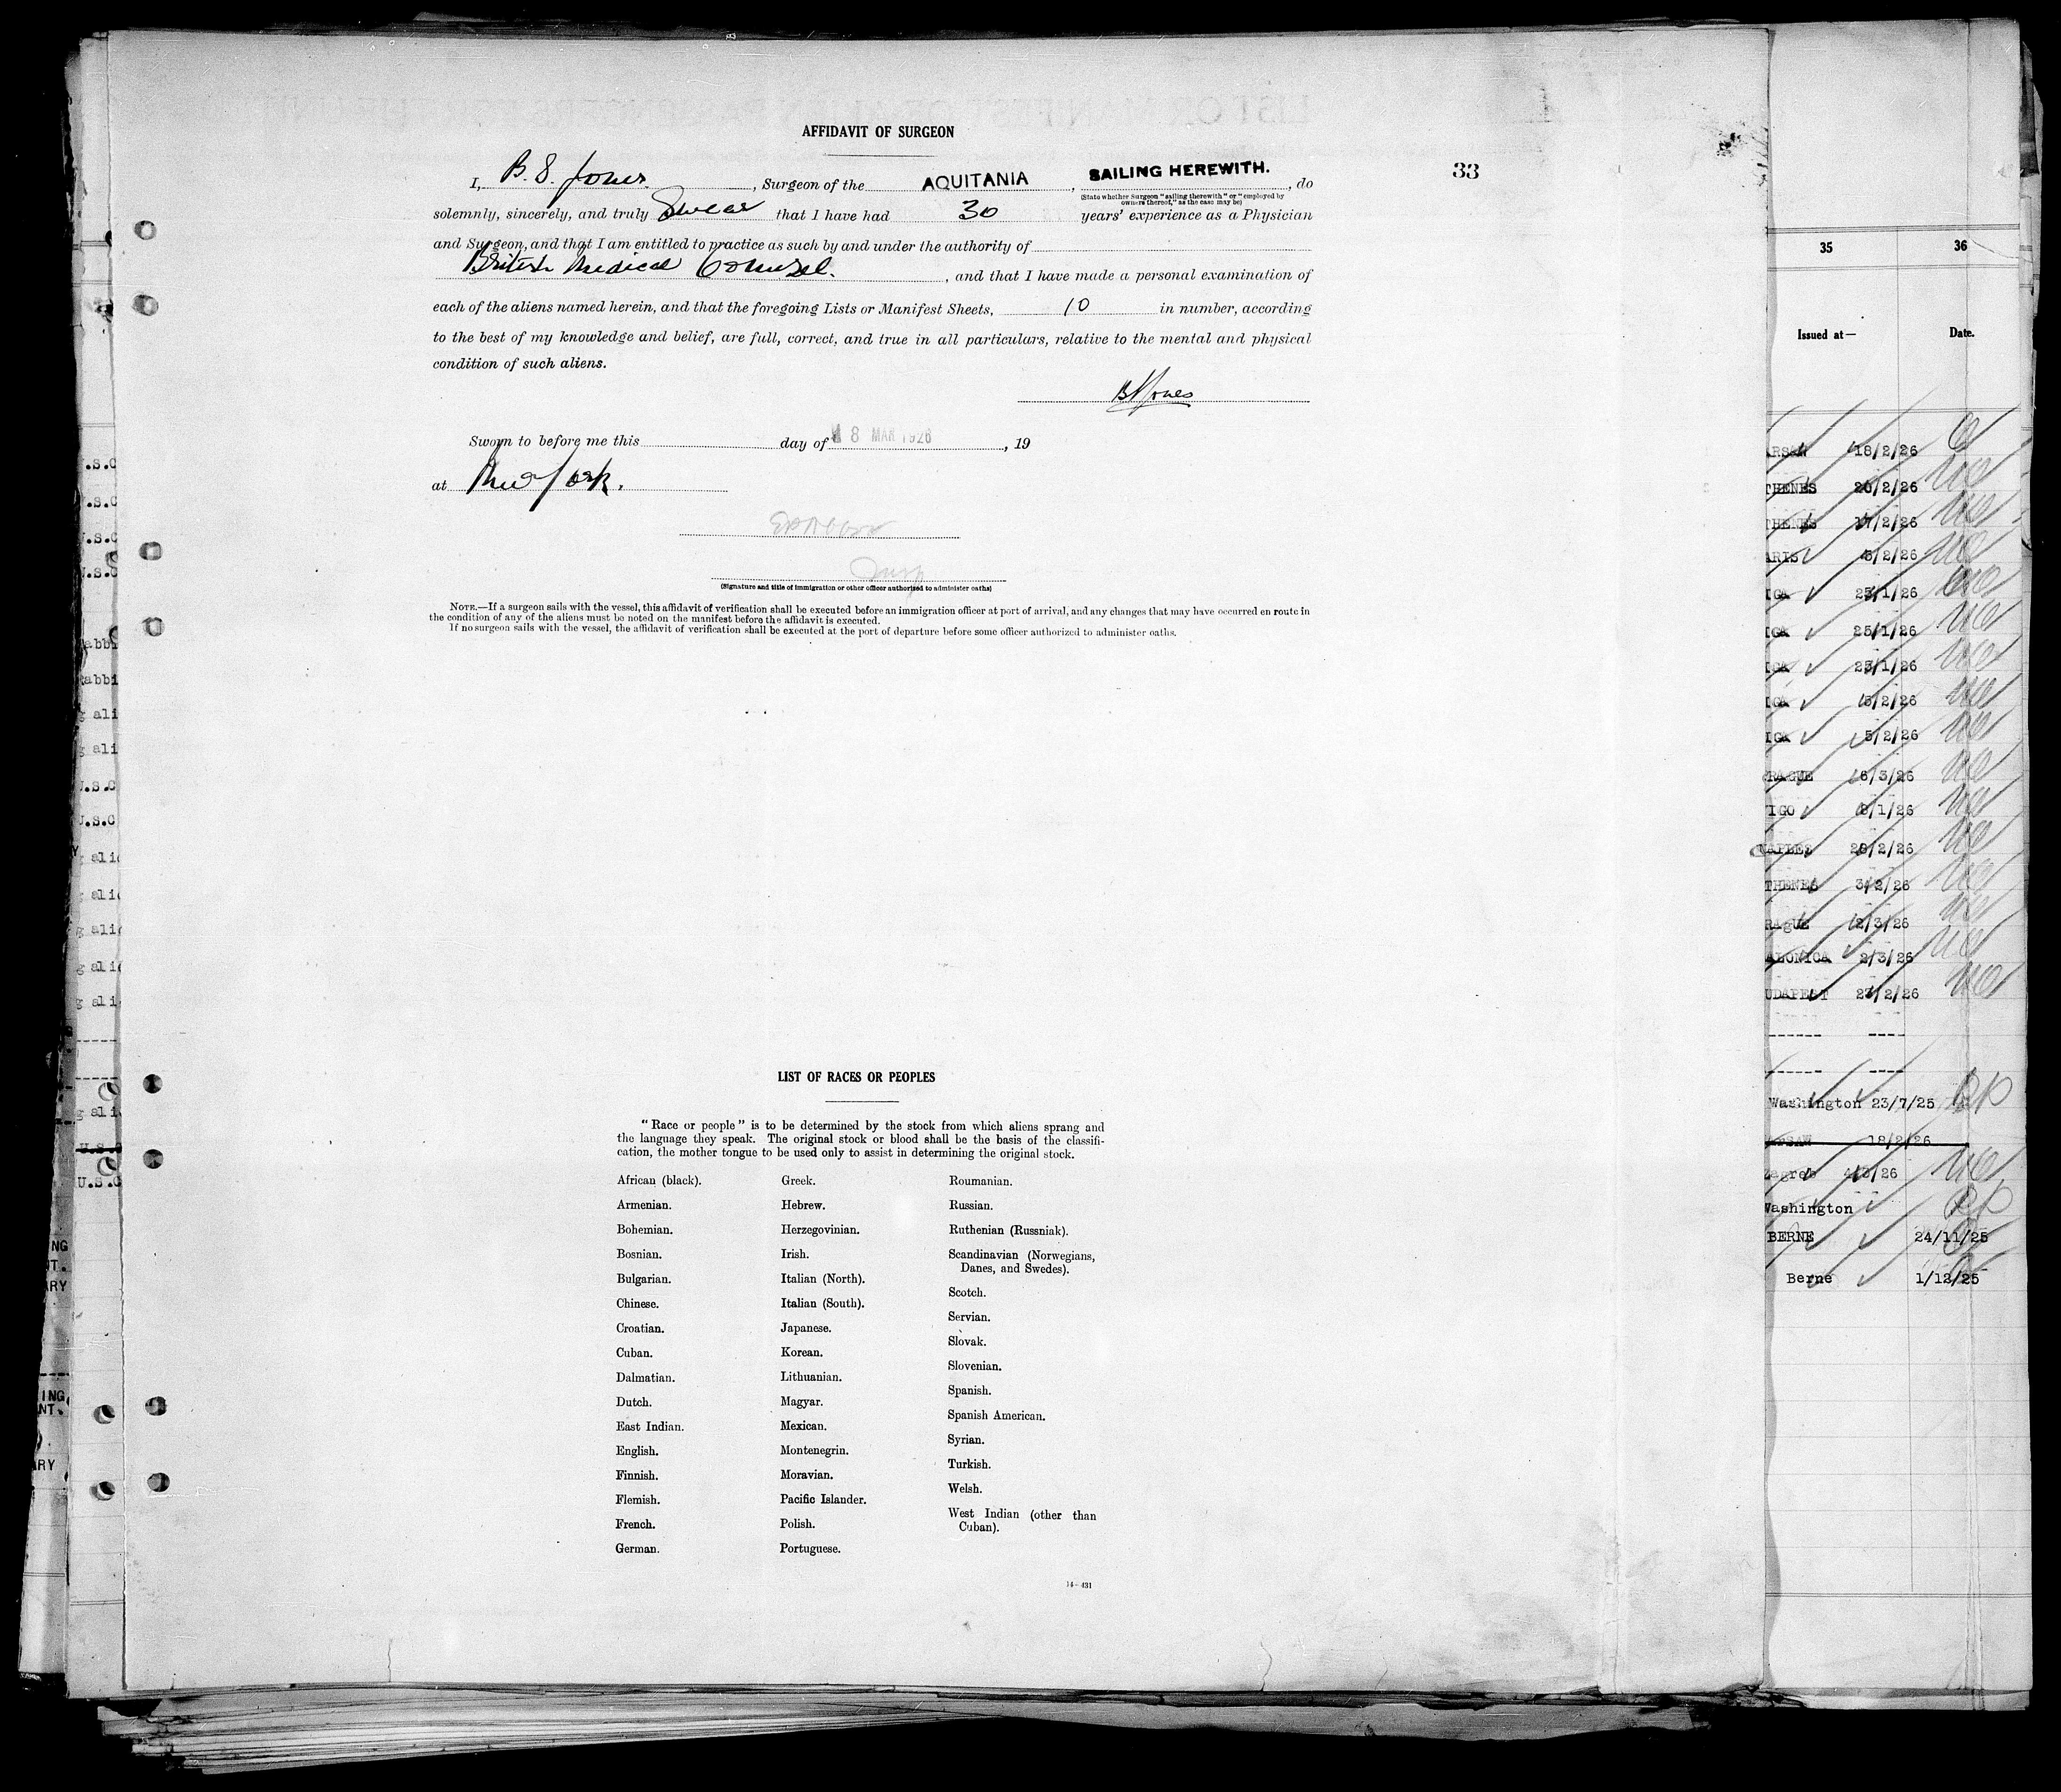 AFFIDAVIT OF SURGEON
I, B. S. Jones, Surgeon of the AQUITANIA, SAILING HEREWITH., do
33
(State whether Surgeon "sailing therewith" or "employed by
owners thereof," as the case may be)
solemnly, sincerely, and truly Swear that I have had 30 years' experience as a Physician
and Surgeon, and that I am entitled to practice as such by and under the authority of
British Medical Counsel., and that I have made a personal examination of
each of the aliens named herein, and that the foregoing Lists or Manifest Sheets, 10 in number, according
to the best of my knowledge and belief, are full, correct, and true in all particulars, relative to the mental and physical
condition of such aliens.
BSJones
Sworn to before me this day of 8 MAR 1926, 19
at New York.
Insp
(Signature and title of immigration or other officer authorized to administer oaths)
NOTE.—If a surgeon sails with the vessel, this affidavit of verification shall be executed before an immigration officer at port of arrival, and any changes that may have occurred en route in
the condition of any of the aliens must be noted on the manifest before the affidavit is executed.
If no surgeon sails with the vessel, the affidavit of verification shall be executed at the port of departure before some officer authorized to administer oaths.
LIST OF RACES OR PEOPLES
"Race or people" is to be determined by the stock from which aliens sprang and
the language they speak. The original stock or blood shall be the basis of the classifi-
cation, the mother tongue to be used only to assist in determining the original stock.
African (black).
Armenian.
Bohemian.
Bosnian.
Bulgarian.
Chinese.
Croatian.
Cuban.
Dalmatian.
Dutch.
East Indian.
English.
Finnish.
Flemish.
French.
German.
Greek.
Hebrew.
Herzegovinian.
Irish.
Italian (North).
Italian (South).
Japanese.
Korean.
Lithuanian.
Magyar.
Mexican.
Montenegrin.
Moravian.
Pacific Islander.
Polish.
Portuguese.
Roumanian.
Russian.
Ruthenian (Russniak).
Scandinavian (Norwegians,
Danes, and Swedes).
Scotch.
Servian.
Slovak.
Slovenian.
Spanish.
Spanish American.
Syrian.
Turkish.
Welsh.
West Indian (other than
Cuban).
14—431
35 36
Issued at— Date.
ARSAW 18/2/26
THENES 20/2/26
THENES 17/2/26
ARIS 5/2/26
IGA 25/1/26
IGA 25/1/26
IGA 25/1/26
IGA 5/2/26
IGA 5/2/26
PRAGUE 6/3/26
VIGO 8/1/26
NAPLES 26/2/26
THENES 3/2/26
RAgUE 2/3/26
ALONICA 2/3/26
UDAPEST 23/2/26
------ ----
------ ----
Washington 23/7/25 RP
18/2/26
Zagreb
Washington RP
BERNE 24/11/25
Berne 1/12/25